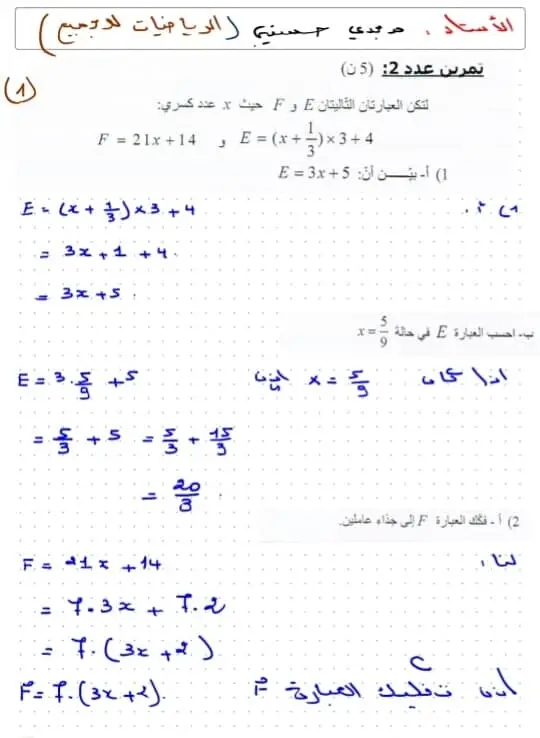 الأستاذ، مجدي حسني (الرياضيات للجميع)
(1)
تمرين عدد 2: (5 ن)
لتكن العبارتان التّاليتان E و F حيث x عدد كسري:
E = (x + 1/3) × 3 + 4 و F = 21x + 14
1) أ- بيّــــن أنّ: E = 3x + 5
1) أ.
E = (x + 1/3) × 3 + 4
= 3x + 1 + 4
= 3x + 5 .
ب- احسب العبارة E في حالة x = 5/9
اذا كان x = 5/9 اذن
E = 3 . 5/9 + 5
= 5/3 + 5 = 5/3 + 15/3
= 20/3 .
2) أ - فكّك العبارة F إلى جذاء عاملين.
لنا،
F = 21x + 14
= 7 . 3x + 7 . 2
= 7 . (3x + 2)
اذن تفكيك العبارة F
F = 7 . (3x + 2) .